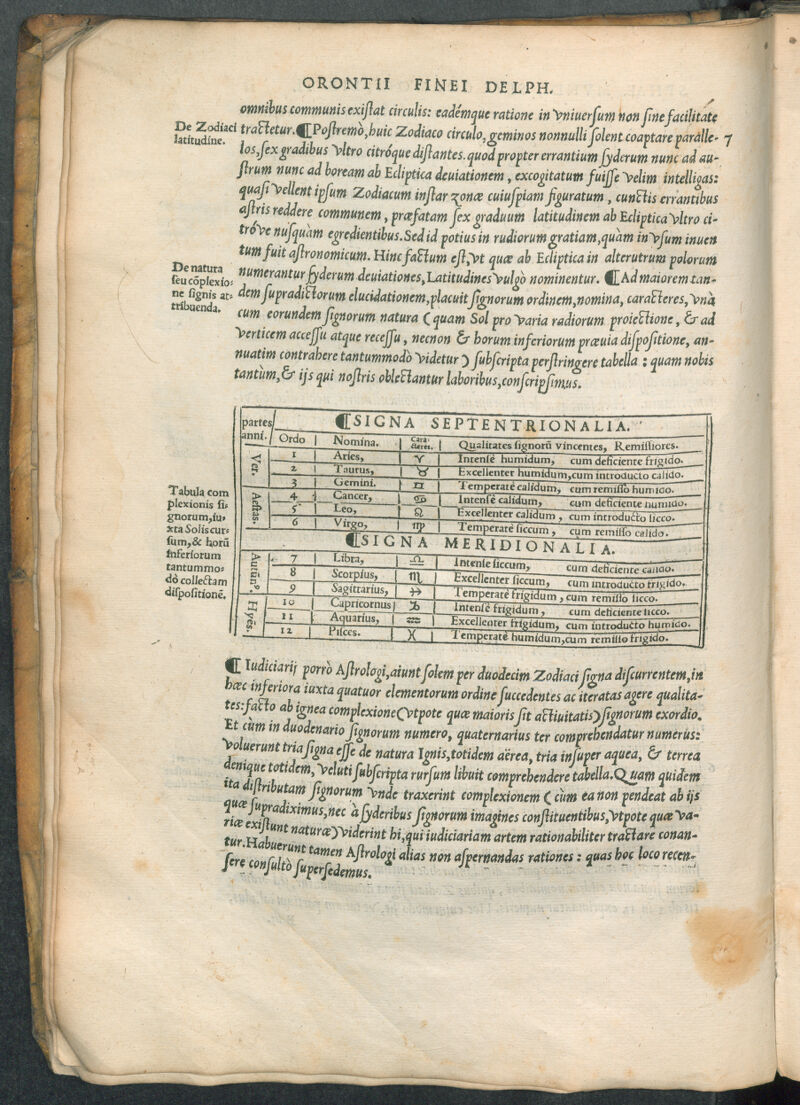 ORONTII FINEI DELPH.
omnibus communis existat circulis: eadémque ratione in vniuersum non sine facilitate
De Zodiaci latitudine.
tractetur.¶Postremò,huic Zodiaco circulo,geminos nonnulli solent coaptare paralle- 7
los,sex gradibus vltro citróque distantes.quod propter errantium syderum nunc ad au-
strum nunc ad boream ab Ecliptica deuiationem, excogitatum fuisse velim intelligas:
quasi vellent ipsum Zodiacum instar zonæ cuiuspiam figuratum, cunctis errantibus
astris reddere communem, præfatam sex graduum latitudinem ab Ecliptica vltro ci-
tróve nusquàm egredientibus.Sed id potius in rudiorum gratiam,quàm in vsum inuen
tum fuit astronomicum. Hinc factum est,vt quæ ab Ecliptica in alterutrum polorum
De natura
seu cõplexio-
ne signis at-
tribuenda.
numerantur syderum deuiationes,Latitudines vulgò nominentur. ¶Ad maiorem tan-
dem supradictorum elucidationem,placuit signorum ordinem,nomina, caracteres,vnà
cum eorundem signorum natura (quam Sol pro varia radiorum proiectione, & ad
verticem accessu atque recessu, necnon & horum inferiorum præuia dispositione, an-
nuatim contrahere tantummodò videtur) subscripta perstringere tabella: quam nobis
tantùm,& ijs qui nostris oblectantur laboribus,conscripsimus.
Tabula com
plexionis si-
gnorum,iu-
xta Solis cur-
sum,& horũ
inferiorum
tantummo-
dò collectam
dispositionẽ.
partes anni. ¶SIGNA SEPTENTRIONALIA.
Ordo | Nomina. | Caracteres. | Qualitates signorũ vincentes, Remissiores.
Ver. 1 | Aries, | ♈ | Intensè humidum, cum deficiente frigido.
2 | Taurus, | ♉ | Excellenter humidum,cum introducto calido.
3 | Gemini. | ♊ | Temperatè calidum, cum remisso humido.
Aestas. 4 | Cancer, | ♋ | Intensè calidum, cum deficiente humido.
5 | Leo, | ♌ | Excellenter calidum, cum introducto sicco.
6 | Virgo, | ♍ | Temperatè siccum, cum remisso calido.
¶SIGNA MERIDIONALIA.
7 | Libra, | ♎ | Intensè siccum, cum deficiente calido.
8 | Scorpius, | ♏ | Excellenter siccum, cum introducto frigido.
9 | Sagittarius, | ♐ | Temperatè frigidum, cum remisso sicco.
10 | Capricornus | ♑ | Intensè frigidum, cum deficiente sicco.
11 | Aquarius, | ♒ | Excellenter frigidum, cum introducto humido.
12 | Pisces. | ♓ | Temperatè humidum,cum remisso frigido.
¶ Iudiciarij porrò Astrologi,aiunt solem per duodecim Zodiaci signa discurrentem,in
hæc inferiora iuxta quatuor elementorum ordine succedentes ac iteratas agere qualita-
tes:facto ab ignea complexione(vtpote quæ maioris sit actiuitatis)signorum exordio.
Et cùm in duodenario signorum numero, quaternarius ter comprehendatur numerus:
voluerunt tria signa esse de natura Ignis,totidem aërea, tria insuper aquea, & terrea
denique totidem, veluti subscripta rursum libuit comprehendere tabella.Quam quidem
ita distributam signorum vnde traxerint complexionem (cùm ea non pendeat ab ijs
quæ supradiximus,nec à syderibus signorum imagines constituentibus,vtpote quæ va-
riæ existunt naturæ)viderint hi,qui iudiciariam artem rationabiliter tractare conan-
tur.Habuerunt tamen Astrologi alias non aspernandas rationes: quas hoc loco recen-
sere consultò supersedemus.